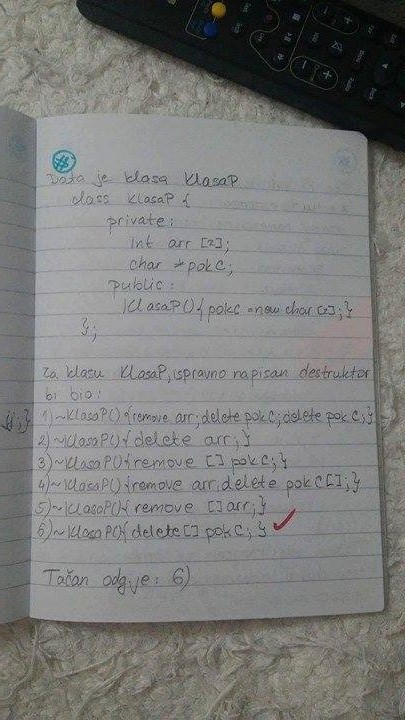 #
Data je klasa KlasaP
class KlasaP {
private:
int arr [2];
char *pokC;
public:
KlasaP(){pokC=new char [2];}
};
Za klasu KlasaP, ispravno napisan destruktor
bi bio:
1)~KlasaP(){remove arr;delete pokC;delete pokC;}
2)~KlasaP(){delete arr;}
3)~KlasaP(){remove [] pokC;}
4)~KlasaP(){remove arr;delete pokC[];}
5)~KlasaP(){remove []arr;}
6)~KlasaP(){delete[] pokC;}
Tačan odg.je: 6)